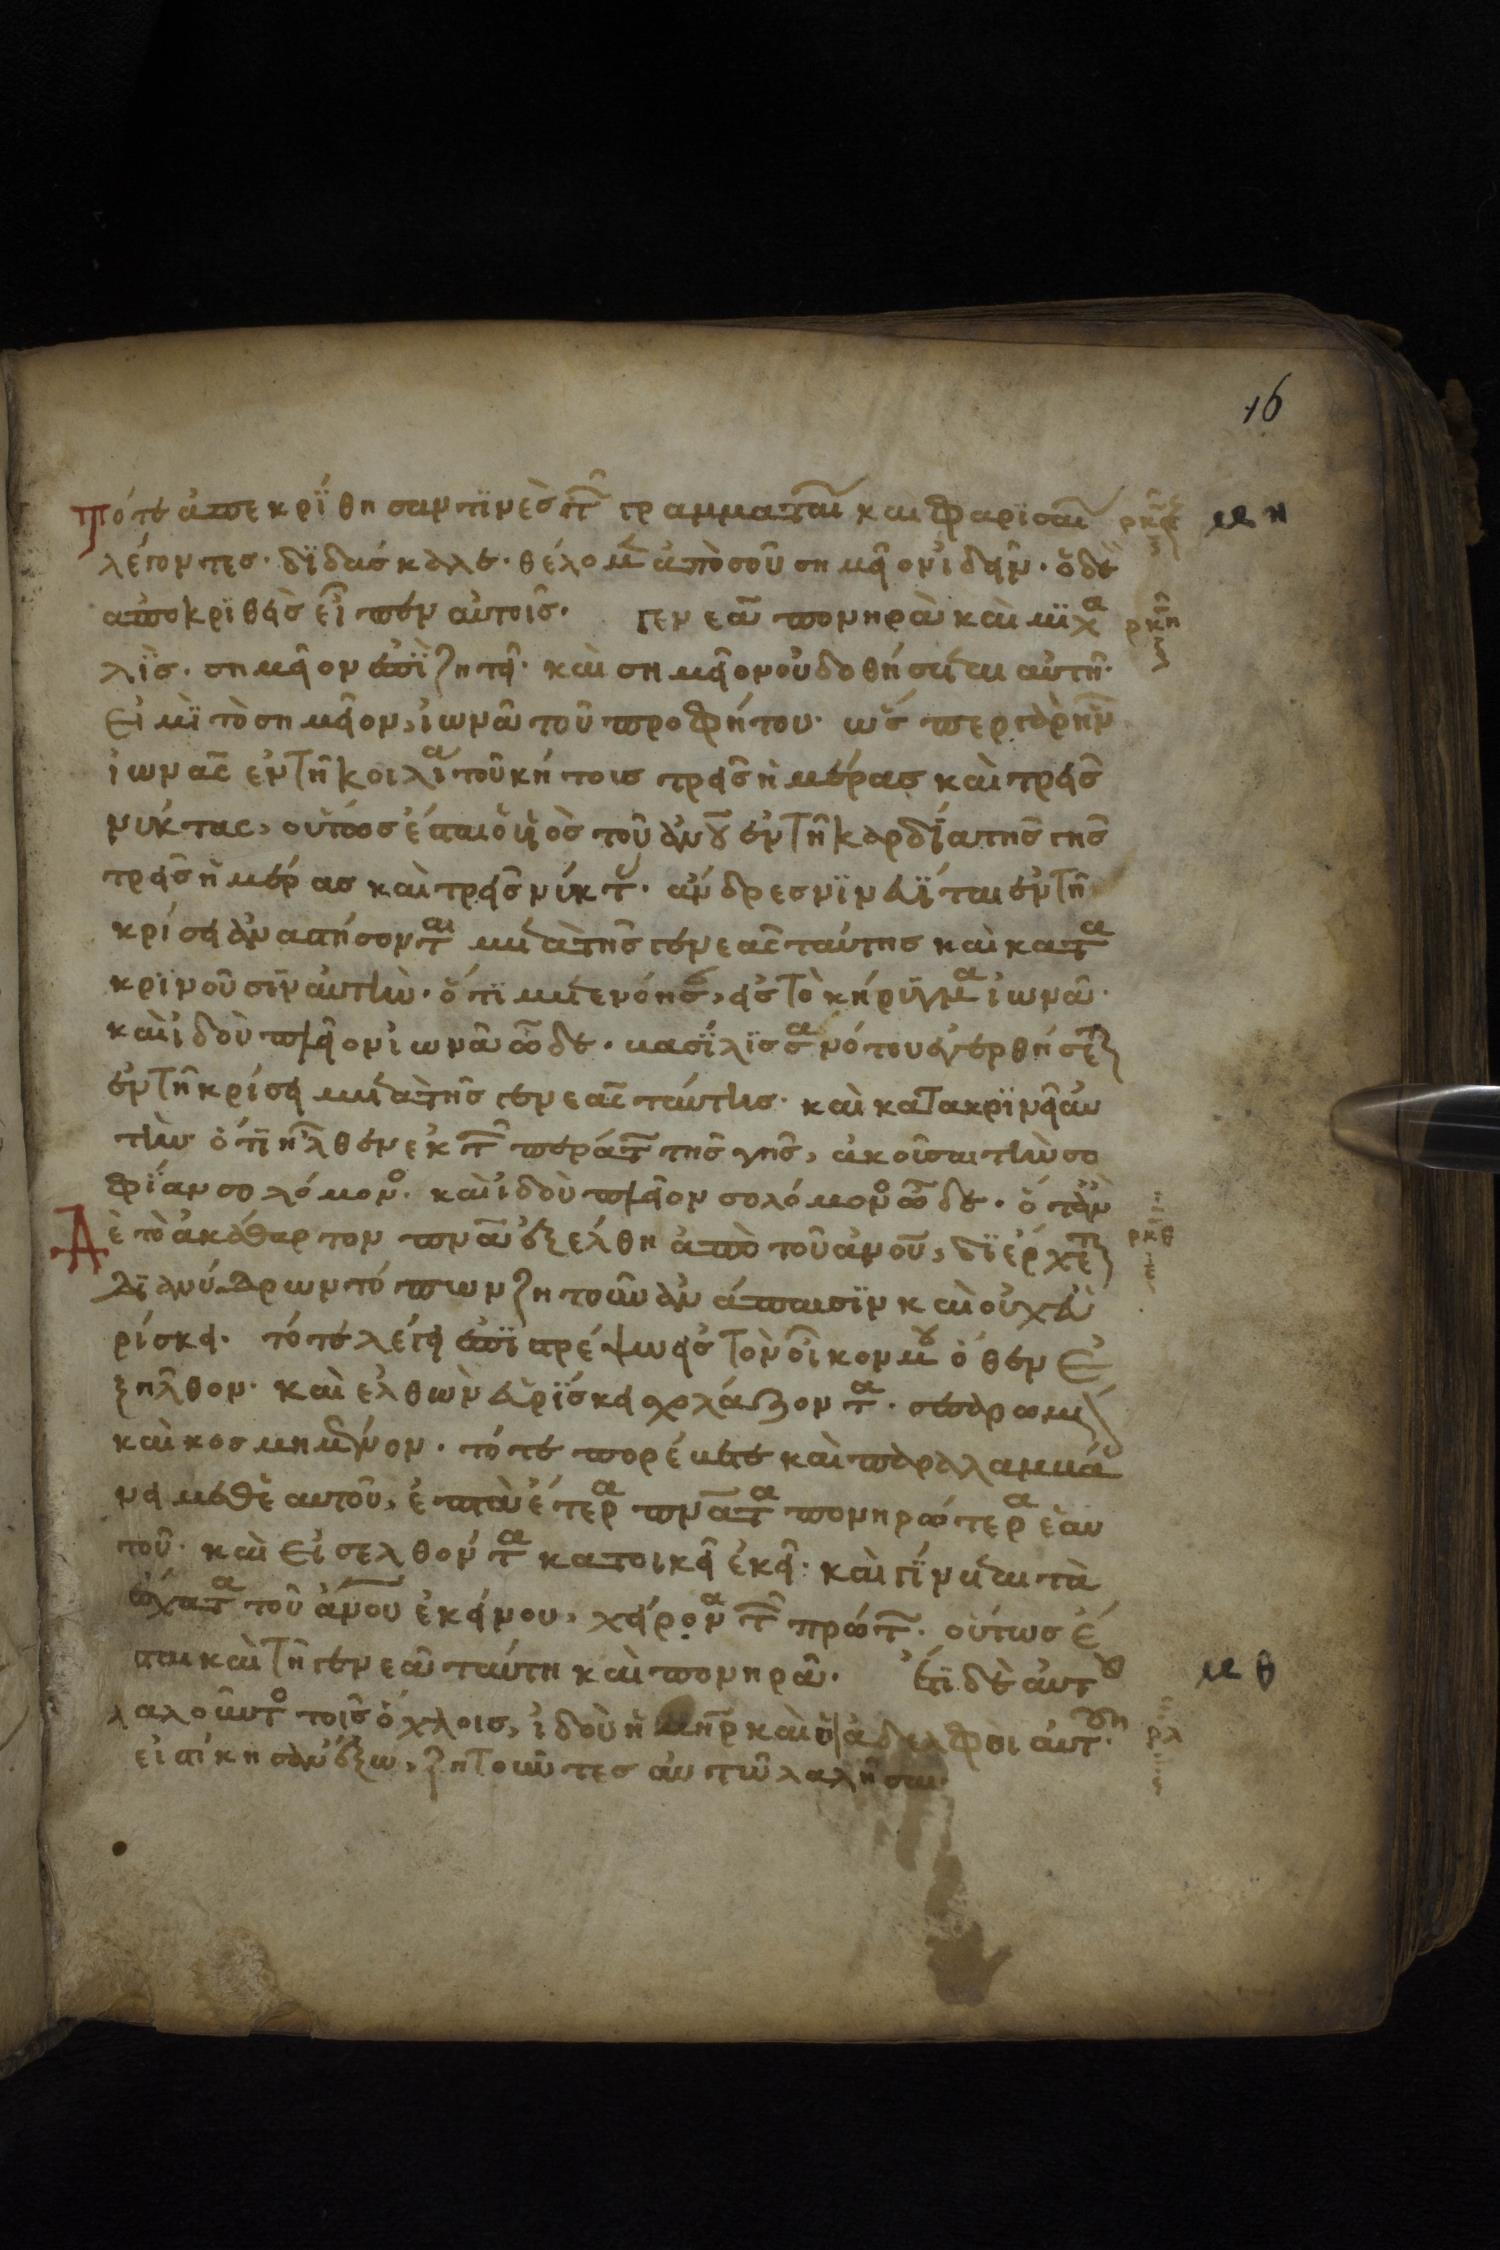 16
Τότε ἀπεκρίθησαν τινὲς τῶν γραμματαὶ καὶ φαρισαὶ ρκζ μη
λέγοντες· διδάσκαλε· θέλομεν ἀπὸ σοῦ σημεῖον ἰδεῖν· ὁ δὲ
ἀποκριθεὶς εἶπεν αὐτοῖς· γενεὰ πονηρὰ καὶ μοιχα ρκη
λὶς· σημεῖον ἐπιζητεῖ· καὶ σημεῖον οὐ δοθήσεται αὐτῆ·
Εἰ μὶ τὸ σημεῖον, ἰωνᾶ τοῦ προφήτου· ὥσπερ γὰρ ἦν
ἰωνᾶς ἐν τῆ κοιλία τοῦ κήτους τρεῖς ἡμέρας καὶ τρεῖς
νύκτας, οὕτως ἔσται ὁ ὑιὸς τοῦ ἀνου ἐν τῆ καρδία τῆς γῆς
τρεῖς ἡμέρας καὶ τρεῖς νύκτας· ἄνδρες νινευῖται ἐν τῆ
κρίσει ἀναστήσονται μετὰ τῆς γενεᾶς ταύτης καὶ κατα
κρινοῦσιν αὐτὴν· ὅτι μετενόησαν, εἰς τὸ κήρυγμα ἰωνᾶ·
καὶ ἰδοὺ πλεῖον ἰωνᾶ ὧδε· βασίλισσα νότου ἐγερθήσεται
ἐν τῆ κρίσει μετὰ τῆς γενεᾶς ταύτης· καὶ κατακρινεῖ αὐ
τὴν· ὅτι ἦλθεν ἐκ τῶν περάτων τῆς γῆς, ἀκοῦσαι τὴν σο
φίαν σολόμονος· καὶ ἰδοὺ πλεῖον σολόμονος ὧδε· ὅταν
δὲ τὸ ἀκάθαρτον πνα ἐξέλθη ἀπὸ τοῦ ἀνου, διέρχεται ρκθ
δι ἀνύδρων τόπων ζητοῦν ἀνάπαυσιν καὶ οὐχ εὑ
ρίσκει· τότε λέγει ἐπιστρέψω εἰς τὸν οἶκον μου ὅθεν ἐ
ξῆλθον· καὶ ἐλθὼν εὑρίσκει σχολάζοντα· σεσαρωμε
καὶ κοσμημένον· τότε πορέυεται καὶ παραλαμβά
νει μεθ ἑαυτοῦ, ἑπτὰ ἕτερα πνατα πονηρώτερα ἑαυ
τοῦ· καὶ εἰσελθόντα κατοικεῖ ἐκεῖ· καὶ γίνεται τὰ
ἔσχατα τοῦ ἀνου ἐκείνου, χείρονα τῶν πρώτων· οὕτως ἔ
σται καὶ τῆ γενεᾶ ταύτη καὶ πονηρᾶ· Ἔτι δὲ αὐτου μθ
λαλοῦντος τοῖς ὄχλοις, ἰδοὺ ἡ μηρ καὶ οἱ ἀδελφοὶ αὐτου· ρλ
εἱστήκησαν ἔξω, ζητοῦντες αὐτῶ λαλῆσαι·